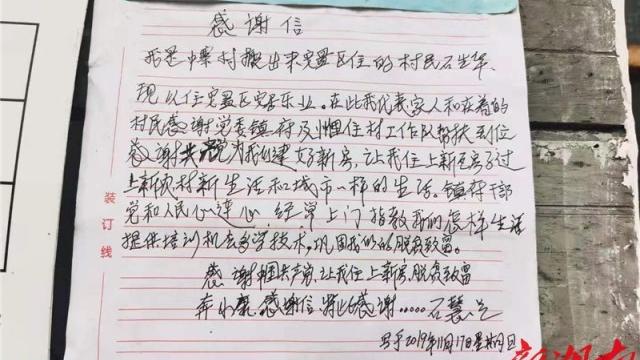 感谢信
我是中寨村搬出来安置区住的村民石生华
现以住安置区安居乐业。在此我代表家人和在着的
村民感谢党委镇府及 住村工作队帮扶到位
感谢共党为我们建好新房,让我住上新房子过
上新农村新生活和城市一样的生活。镇府干部
党和人民心连心,经常上门指教我们怎样生活
提供培训机会学技术,巩固我们的脱贫致富。
感谢中国共产党,让我住上新房,脱贫致富
奔小康,感谢信 特此感谢.....石慧兰
写于2019年11月17日星期日
装订线